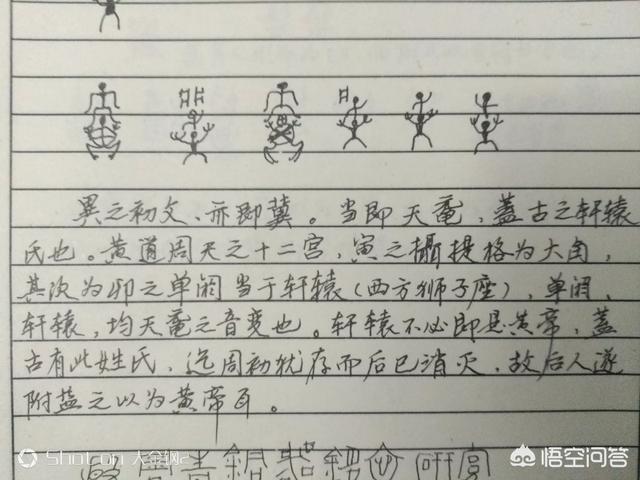 異之初文、亦即冀。当即天黿，蓋古之轩辕
氏也。黄道周天之十二宫，寅之摄提格为大角，
其次为卯之单阏当于轩辕（西方狮子座），单阏、
轩辕，均天黿之音变也。轩辕不必即是黄帝，蓋
古有此姓氏，迄周初犹存而后已消灭，故后人遂
附益之以为黄帝耳。
Shot on 大金钢2
悟空问答